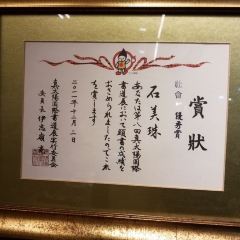 賞狀
社會 優秀賞
石美珠
あなたは第八回真太陽国際
書道展において頭書の成績を
おさめられましたのでこれ
を賞します
二〇一一年十二月二日
真太陽国際書道展実行委員会
委員長 伊志嶺